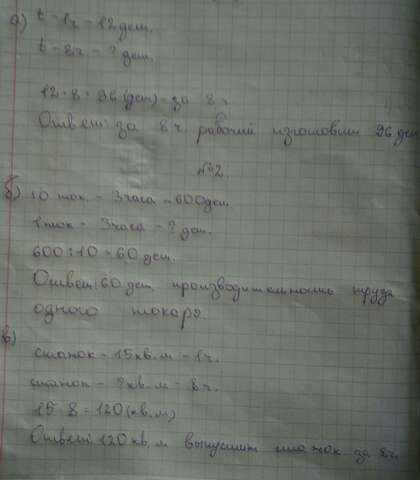 а) t - 1ч - 12 дет.
t - 8ч - ? дет.
12 · 8 = 96 (дет) - за 8 ч
Ответ: за 8 ч рабочий изготовит 96 дет
№2.
б) 10 ток. - 3 часа - 600 дет
1 ток - 3 часа - ? дет.
600 : 10 = 60 дет.
Ответ: 60 дет. производительность труда
одного токаря.
в)
станок - 15 кв. м - 1ч.
станок - ? кв. м - 8ч.
15 · 8 = 120 (кв. м)
Ответ: 120 кв. м выпустит станок за 8ч.